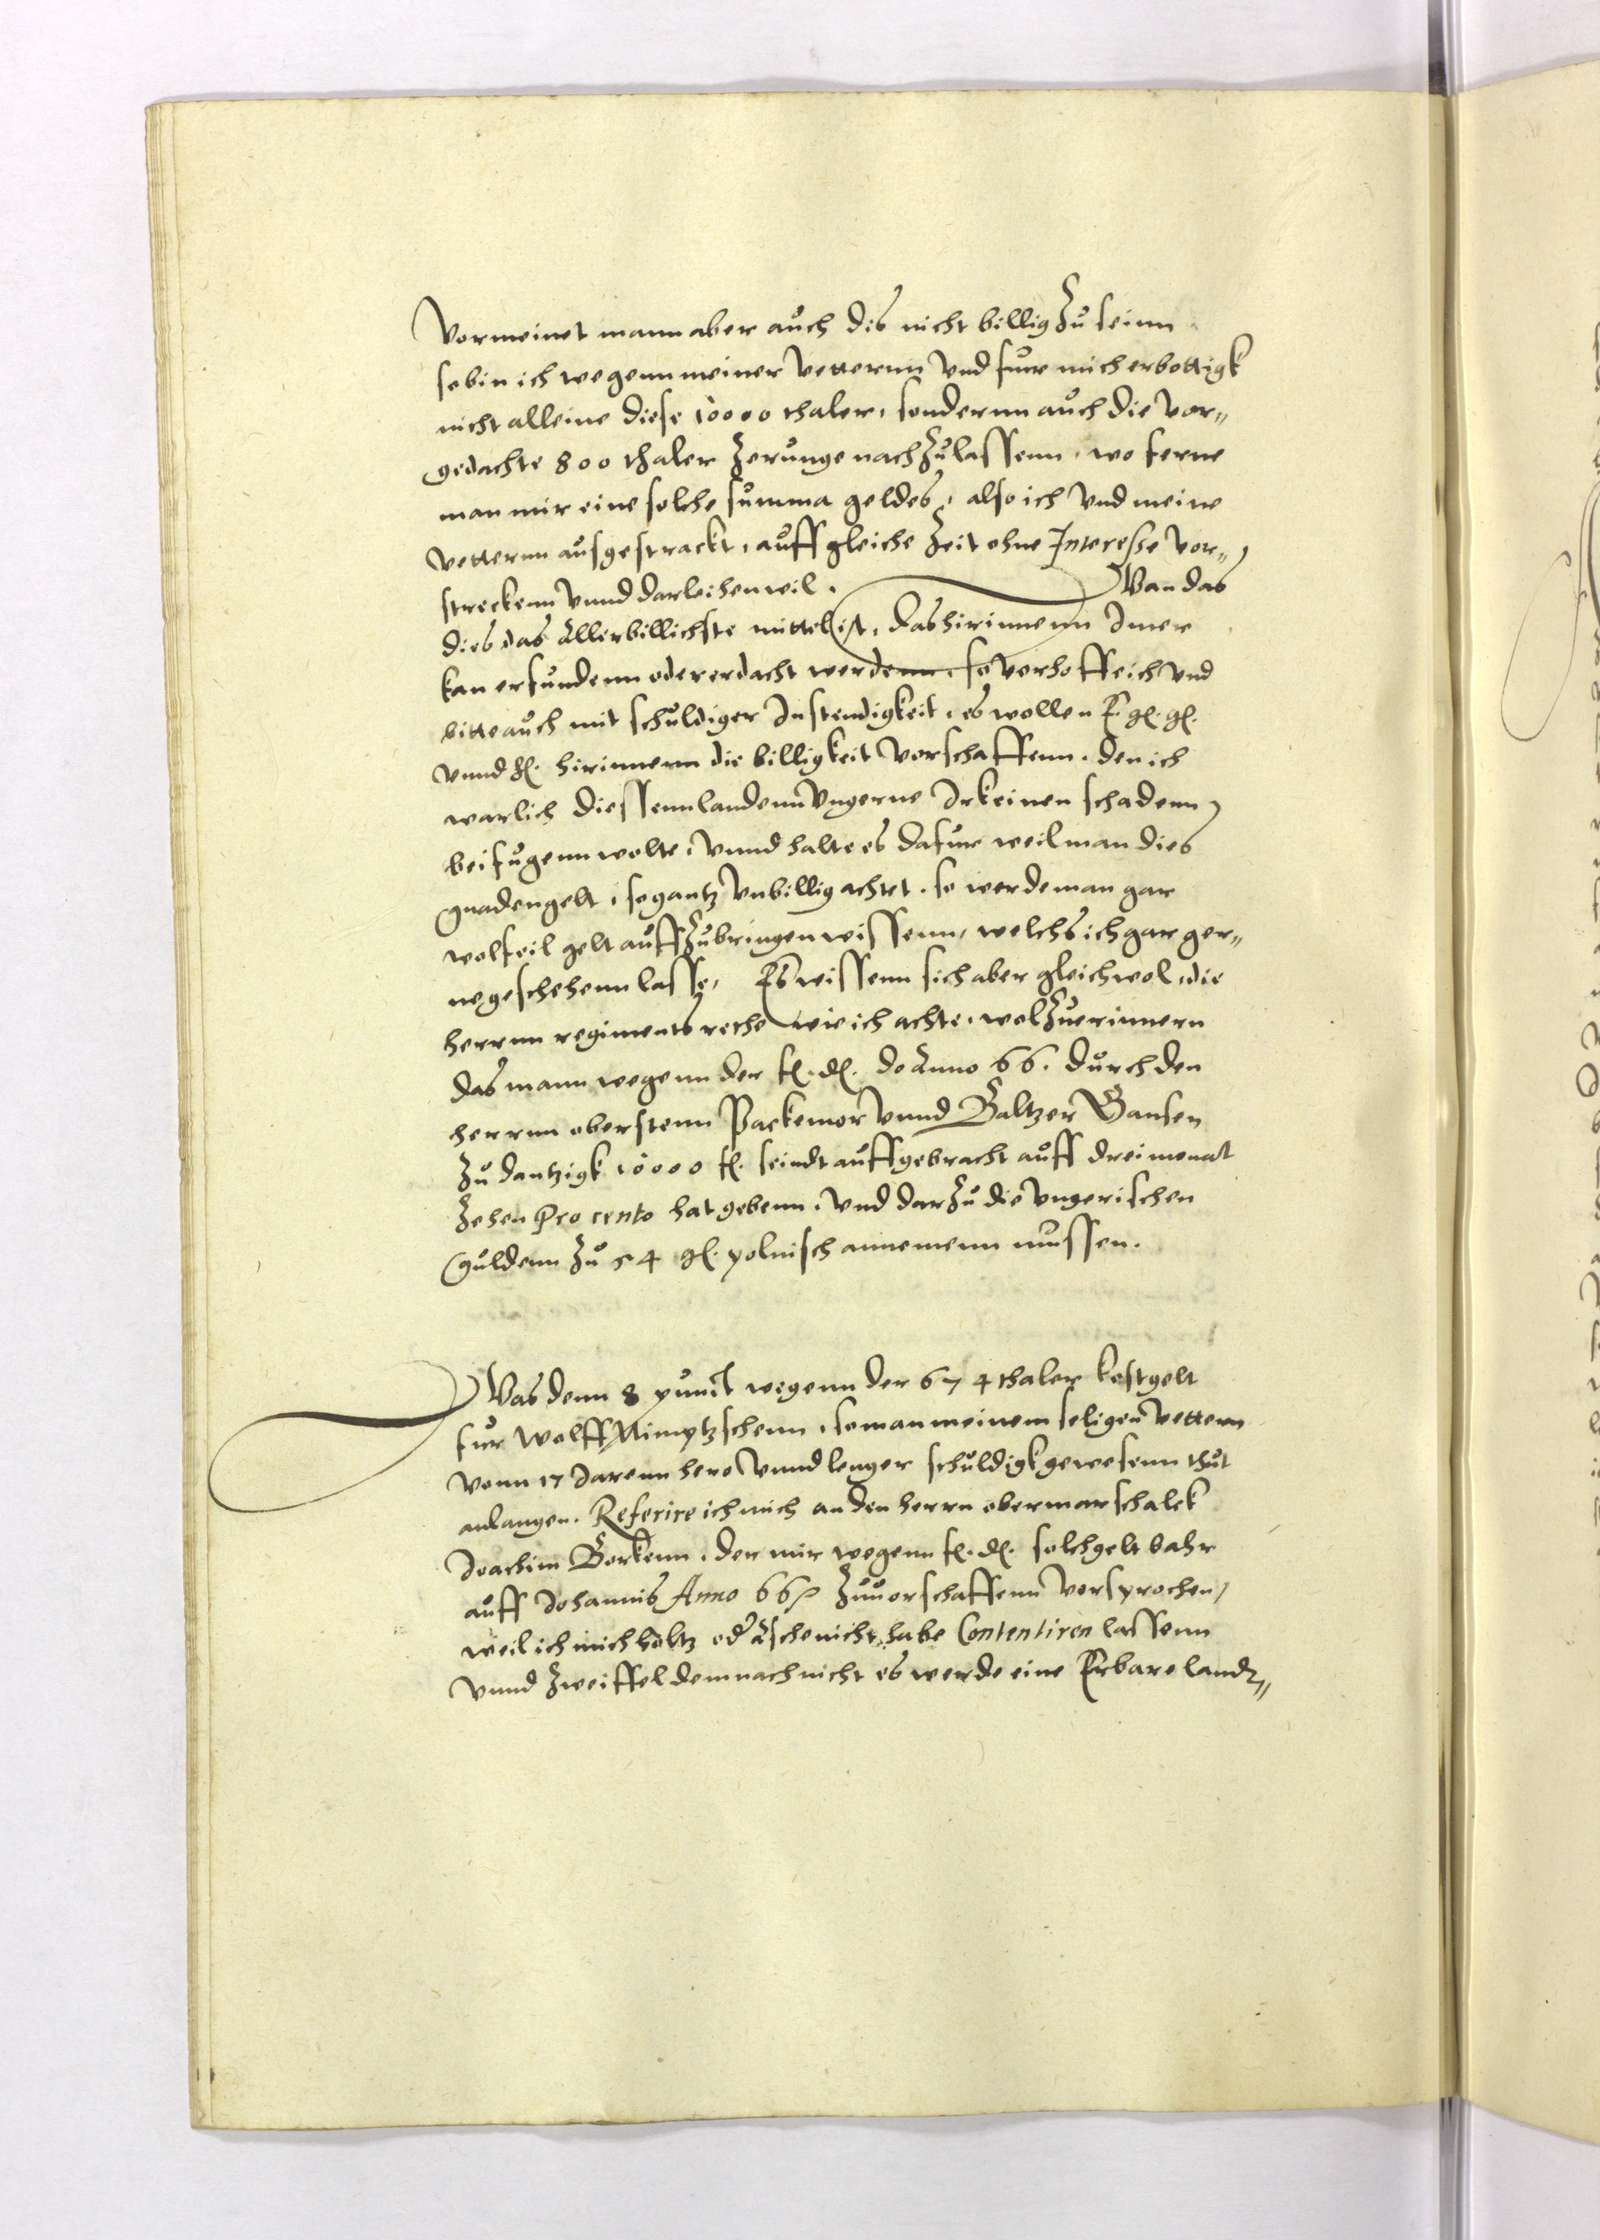 Vormeinet mann aber auch dis nicht billig Zu seinn
so bin ich wegenn meiner Vetternn Vnd funr mich erbottigk
nicht alleine diese 10000 thaler, sondernn auch die Vor„
gedachte 800 thaler Zerunge nachZulassenn, wo ferne
man mir eine solche summa geldes, also ich Vnd meine
Vetternn ausgestrackt, auff gleiche Zeit ohne Interesse Vor„
streckenn Vnnd darleihen wil. Wan das
dies das allerbillichste mittel ist, das hirinnenn Imer
kan erfundenn oder erdacht werdenn, so verhoffe ich Vnd
bitte auch mit schuldiger Instendigkeit, es wollen E. gl. gl.
Vnnd hl. hirinnenn die billigkeit Vorschaffenn. den ich
warlich diessenn landenn Vngerne Irkeinen schadenn
beifugenn wolte, Vnnd halte es dafunr weil man dies
gnadengelt, so gantz Vnbillig achtet. so werde man gar
wolfeil gelt auffZubringen wissenn, welchs ich gar ger„
ne geschehenn lasse, Es wissenn sich aber gleichwol, die
herrnn regiments rethe wie ich achte, wol Zuerinnern
das mann wegenn der fl. dl. de Anno 66. durch den
herrnn oberstenn Packemor Vnnd Baltzer Gansen
Zu dantzigk 10000 fl. seindt auffgebracht auff drei monat
Zehen Pro cento hat gebenn. Vnd darZu die Vngerischen
Guldenn Zu 54 gl. polnisch annemenn mussen.
Was denn 8 punct wegenn der 674 thaler kostgelt
fur Wolff Nimptzschenn, so man meinem seligen Vettern
Vonn 17 Jarenn hero Vnnd lenger schuldigk gewesenn thut
anlangen. Referire ich mich an den herrn obermarschalck
Joachim Borkenn. der mir wegenn fl. dl. solch gelt bahr
auff Johannis Anno 66 Zuuorschaffenn Versprochen,
weil ich mich holtz oder Asche nicht habe Contentiren lassenn
Vnnd Zweiffel demnach nicht es werde eine Erbare landt„